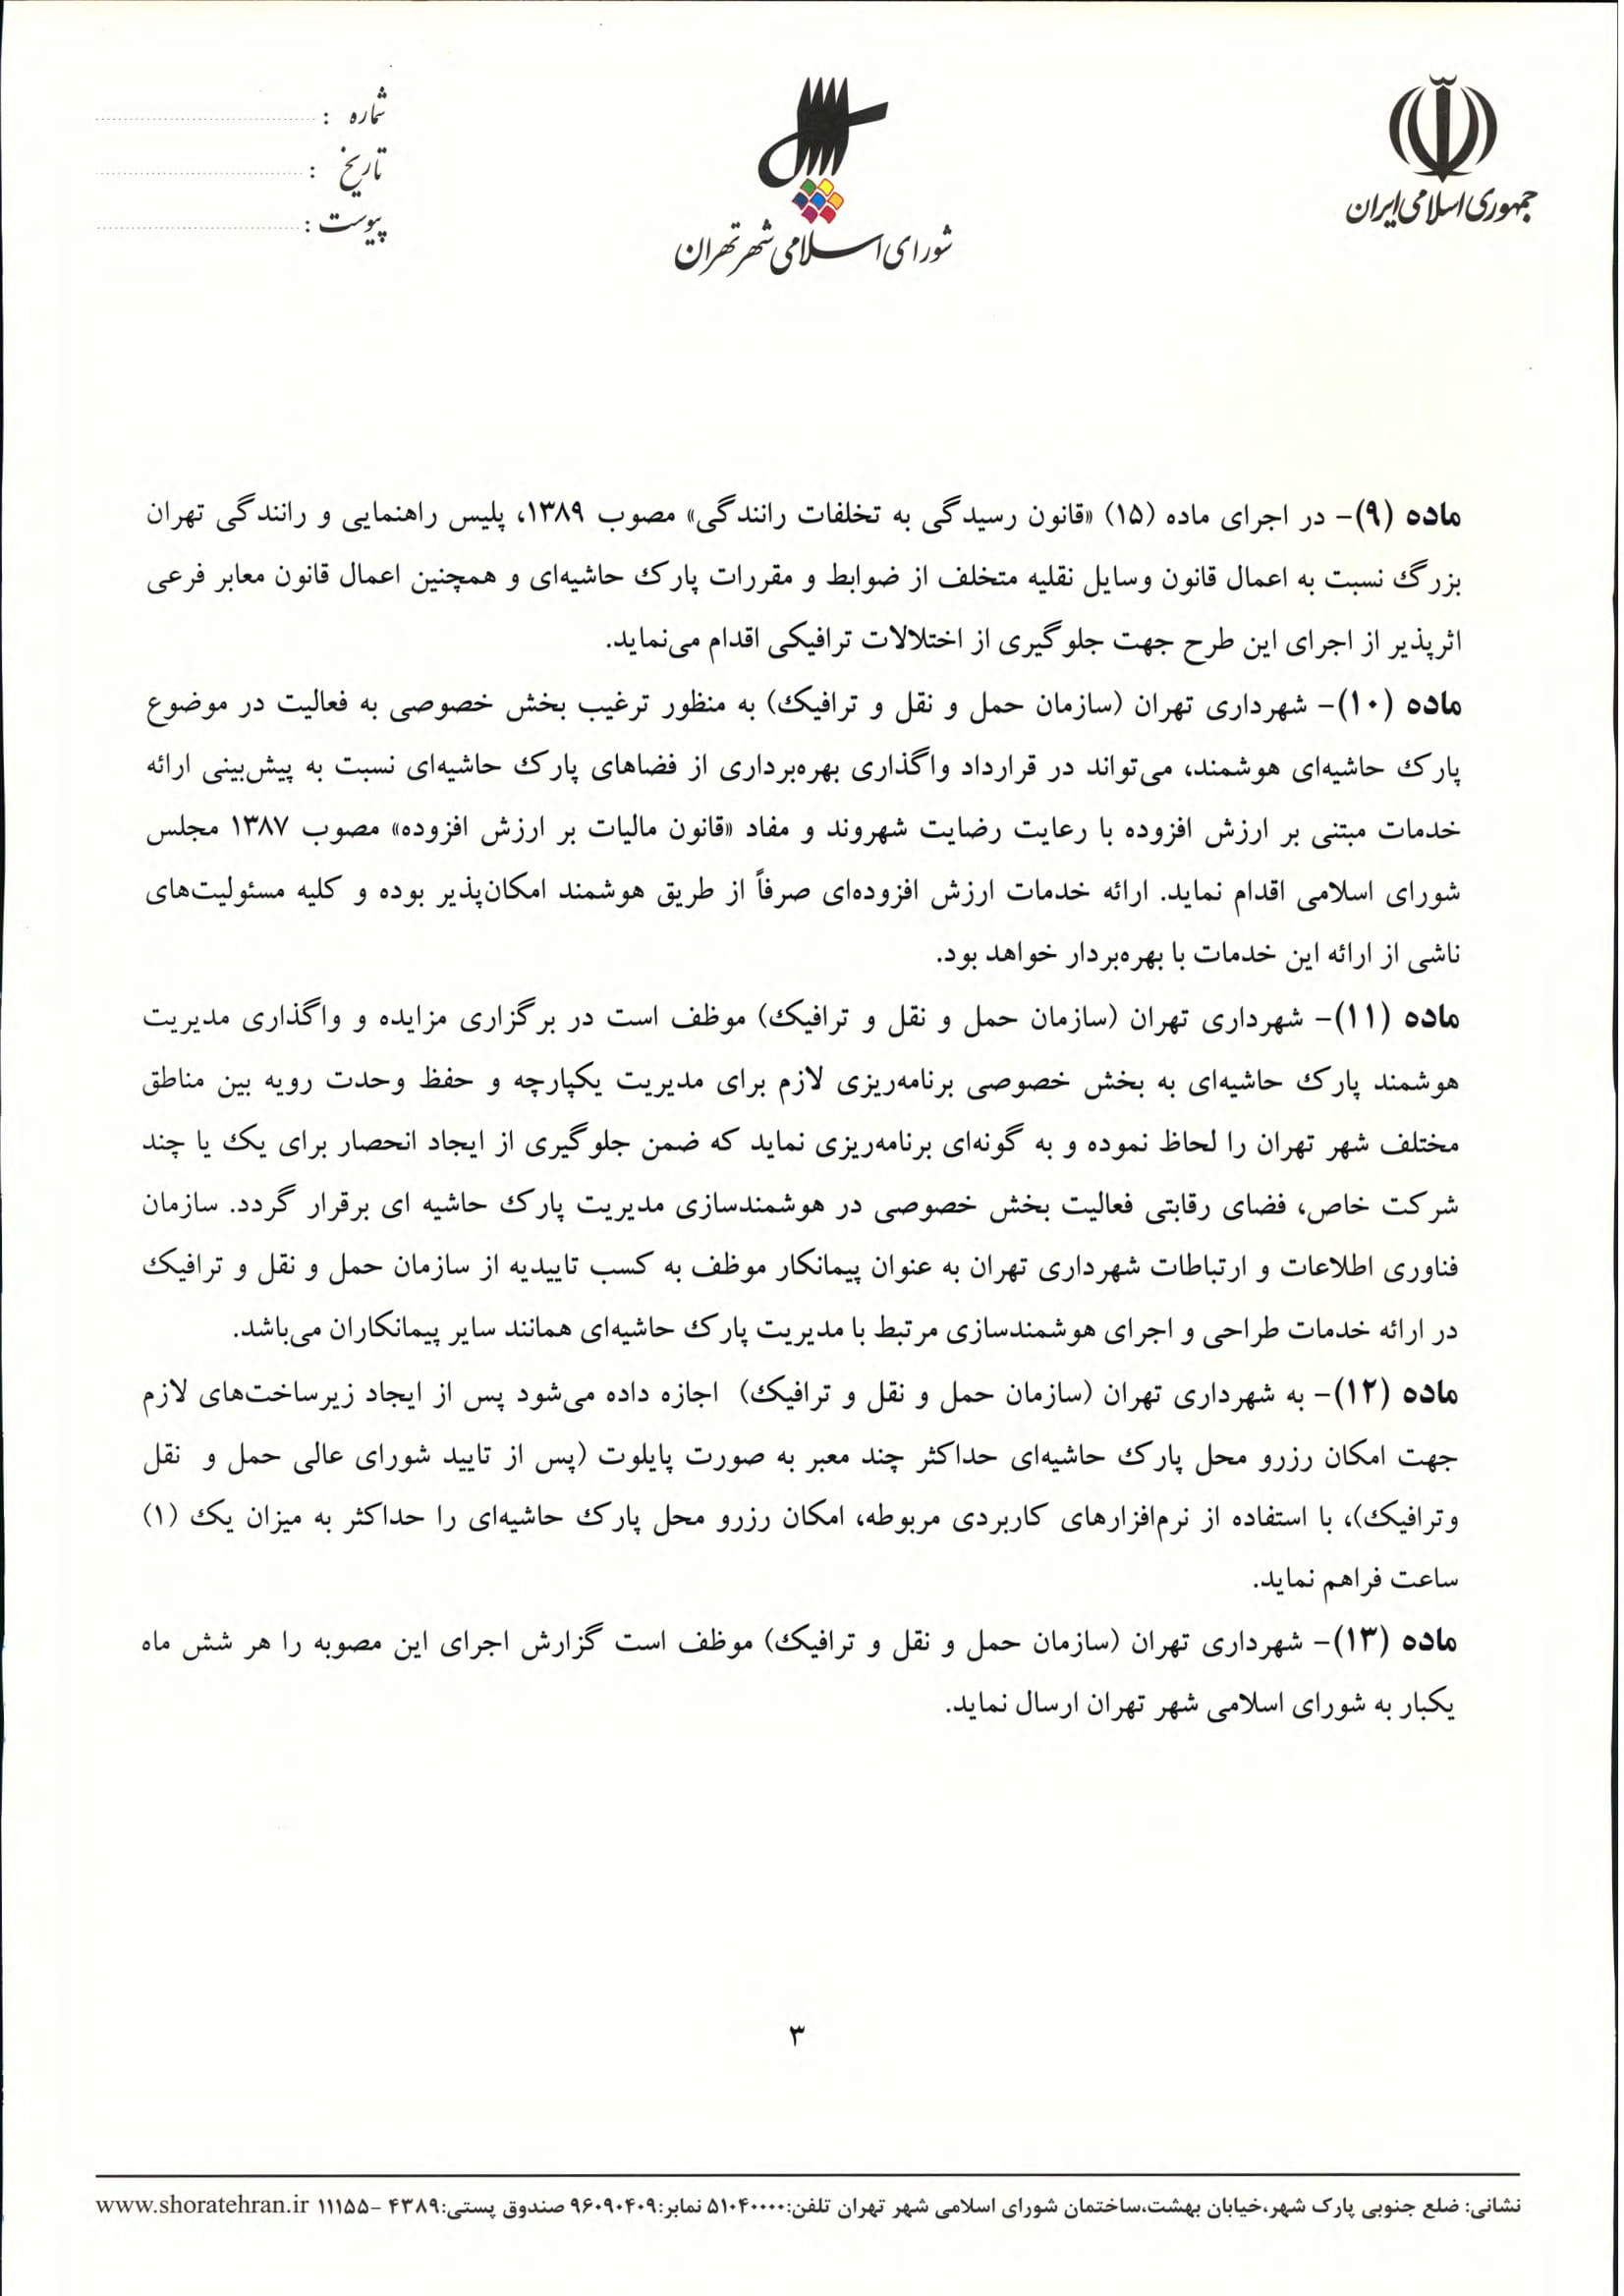 جمهوری اسلامی ایران
شورای اسلامی شهر تهران
شماره :
تاریخ :
پیوست :
ماده (۹)- در اجرای ماده (۱۵) «قانون رسیدگی به تخلفات رانندگی» مصوب ۱۳۸۹، پلیس راهنمایی و رانندگی تهران
بزرگ نسبت به اعمال قانون وسایل نقلیه متخلف از ضوابط و مقررات پارک حاشیه‌ای و همچنین اعمال قانون معابر فرعی
اثرپذیر از اجرای این طرح جهت جلوگیری از اختلالات ترافیکی اقدام می‌نماید.
ماده (۱۰)- شهرداری تهران (سازمان حمل و نقل و ترافیک) به منظور ترغیب بخش خصوصی به فعالیت در موضوع
پارک حاشیه‌ای هوشمند، می‌تواند در قرارداد واگذاری بهره‌برداری از فضاهای پارک حاشیه‌ای نسبت به پیش‌بینی ارائه
خدمات مبتنی بر ارزش افزوده با رعایت رضایت شهروند و مفاد «قانون مالیات بر ارزش افزوده» مصوب ۱۳۸۷ مجلس
شورای اسلامی اقدام نماید. ارائه خدمات ارزش افزوده‌ای صرفاً از طریق هوشمند امکان‌پذیر بوده و کلیه مسئولیت‌های
ناشی از ارائه این خدمات با بهره‌بردار خواهد بود.
ماده (۱۱)- شهرداری تهران (سازمان حمل و نقل و ترافیک) موظف است در برگزاری مزایده و واگذاری مدیریت
هوشمند پارک حاشیه‌ای به بخش خصوصی برنامه‌ریزی لازم برای مدیریت یکپارچه و حفظ وحدت رویه بین مناطق
مختلف شهر تهران را لحاظ نموده و به گونه‌ای برنامه‌ریزی نماید که ضمن جلوگیری از ایجاد انحصار برای یک یا چند
شرکت خاص، فضای رقابتی فعالیت بخش خصوصی در هوشمندسازی مدیریت پارک حاشیه ای برقرار گردد. سازمان
فناوری اطلاعات و ارتباطات شهرداری تهران به عنوان پیمانکار موظف به کسب تاییدیه از سازمان حمل و نقل و ترافیک
در ارائه خدمات طراحی و اجرای هوشمندسازی مرتبط با مدیریت پارک حاشیه‌ای همانند سایر پیمانکاران می‌باشد.
ماده (۱۲)- به شهرداری تهران (سازمان حمل و نقل و ترافیک) اجازه داده می‌شود پس از ایجاد زیرساخت‌های لازم
جهت امکان رزرو محل پارک حاشیه‌ای حداکثر چند معبر به صورت پایلوت (پس از تایید شورای عالی حمل و نقل
وترافیک)، با استفاده از نرم‌افزارهای کاربردی مربوطه، امکان رزرو محل پارک حاشیه‌ای را حداکثر به میزان یک (۱)
ساعت فراهم نماید.
ماده (۱۳)- شهرداری تهران (سازمان حمل و نقل و ترافیک) موظف است گزارش اجرای این مصوبه را هر شش ماه
یکبار به شورای اسلامی شهر تهران ارسال نماید.
۳
نشانی: ضلع جنوبی پارک شهر،خیابان بهشت،ساختمان شورای اسلامی شهر تهران تلفن:۵۱۰۴۰۰۰۰ نمابر:۹۶۰۹۰۴۰۹ صندوق پستی:۴۳۸۹ -۱۱۱۵۵ www.shoratehran.ir